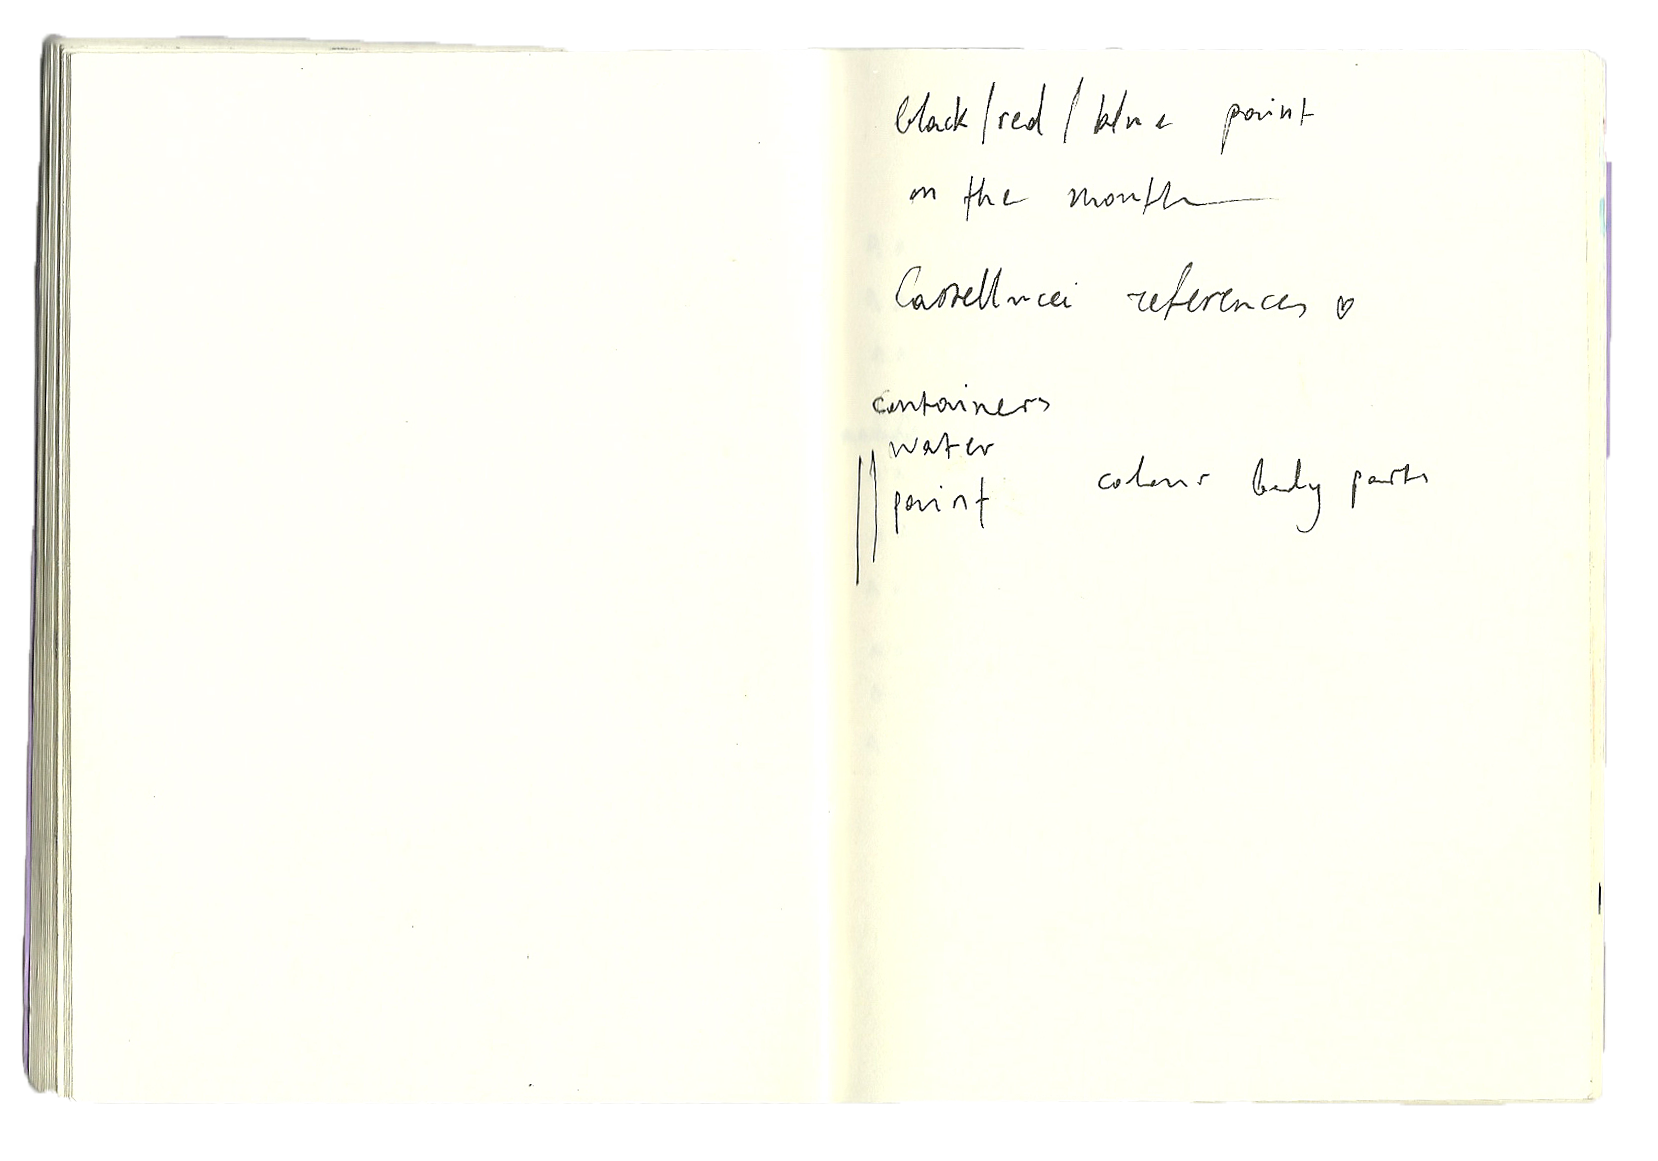 black/red/blue paint
on the mouth
Castellucci references ♡
containers
water
paint
colour body parts